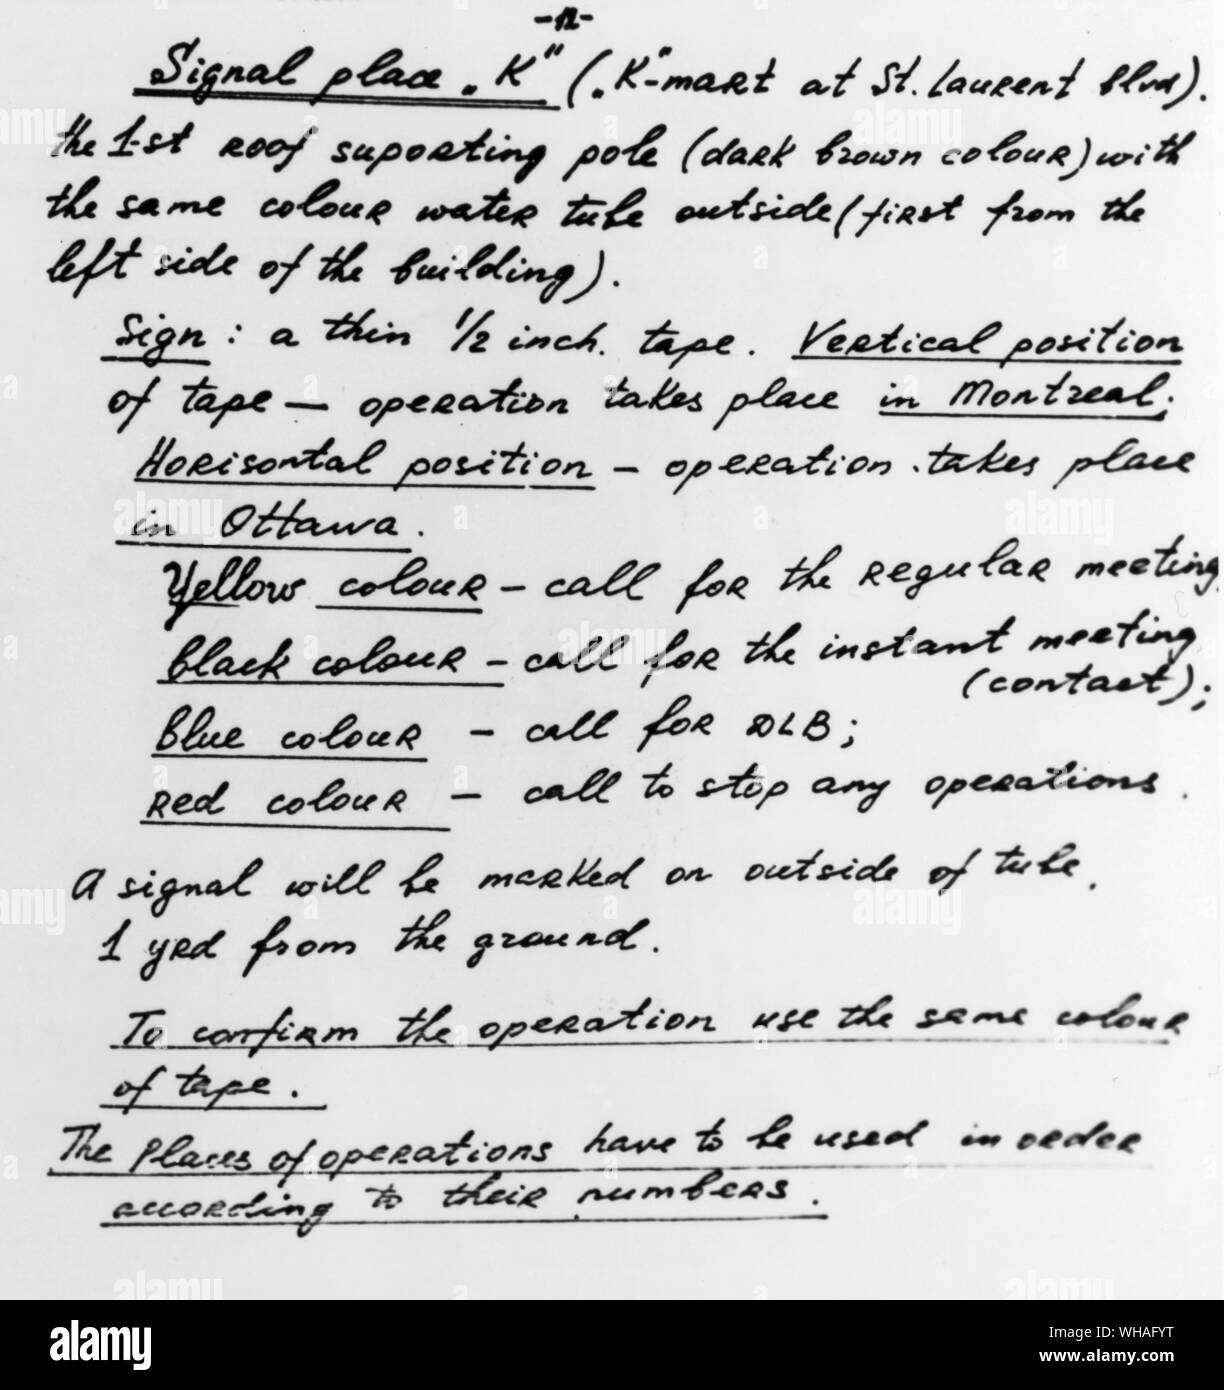 -12-
Signal place „K" („K"-mart at St. Laurent blvd).
the 1-st roof suporting pole (dark brown colour) with
the same colour water tube outside (first from the
left side of the building).
Sign: a thin 1/2 inch. tape. Vertical position
of tape — operation takes place in Montreal;
Horisontal position - operation takes place
in Ottawa.
Yellow colour - call for the regular meeting
black colour - call for the instant meeting
(contact);
blue colour - call for DLB;
red colour - call to stop any operations.
A signal will be marked on outside of tube,
1 yrd from the ground.
To confirm the operation use the same colour
of tape.
The places of operations have to be used in order
according to their numbers.
alamy
Image ID: WHAFYT
www.alamy.com